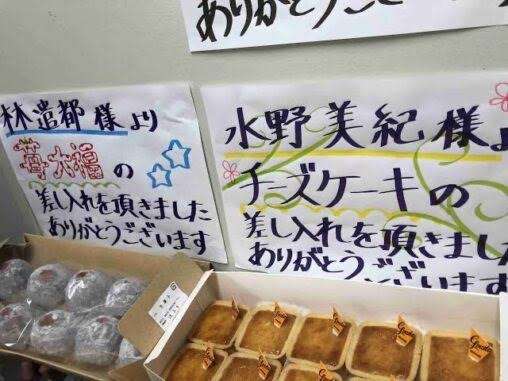 ありがとうござい
林遣都様より
苺大福の
差し入れを頂きました
ありがとうございます
水野美紀様よ
チーズケーキの
差し入れを頂きました
ありがとうございます